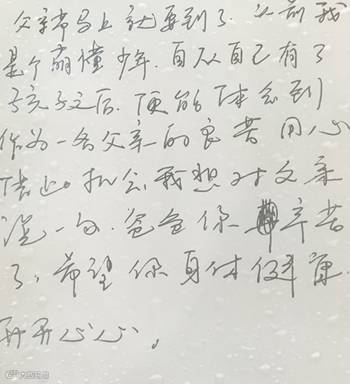 父亲节马上就要到了.以前我
是个萌懂少年.自从自己有了
孩子之后.更能体会到
作为一名父亲的良苦用心
借此机会我想对父亲
说一句.爸爸你辛苦
了,希望你身体健康.
开开心心。